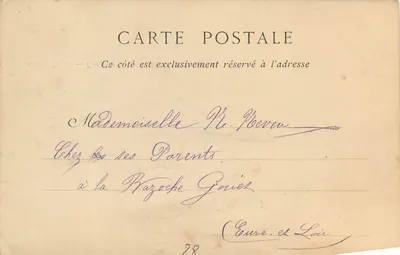 CARTE POSTALE
Ce côté est exclusivement réservé à l'adresse
Mademoiselle N. Neveu
Chez ses Parents
à la Bazoche Gouet
(Eure-et Loir)
28